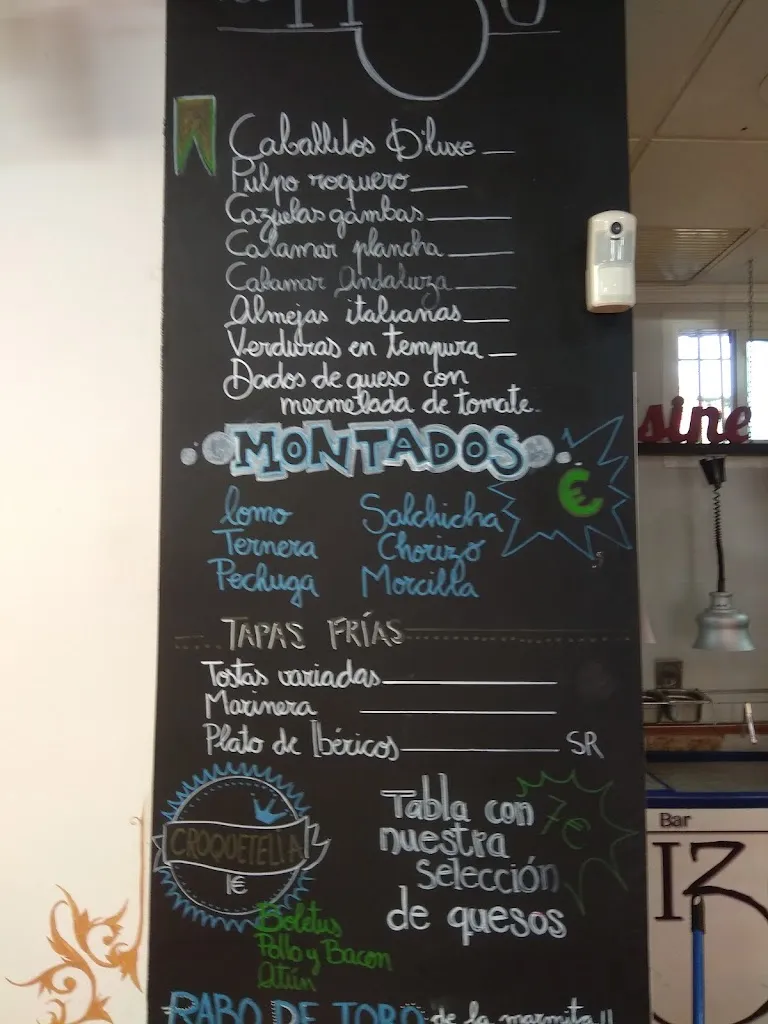 Caballitos D'luxe
Pulpo roquero
Cazuelas gambas
Calamar plancha
Calamar Andaluza
Almejas italianas
Verduras en tempura
Dados de queso con
mermelada de tomate.
MONTADOS
€
lomo Salchicha
Ternera Chorizo
Pechuga Morcilla
TAPAS FRÍAS
Tostas variadas
Marinera
Plato de Ibéricos SR
CROQUETELIA
1€
Boletus
Pollo y Bacon
Atún
Tabla con
nuestra
Selección
de quesos
7€
RABO DE TORO de la marmita!!
sine
Bar
13